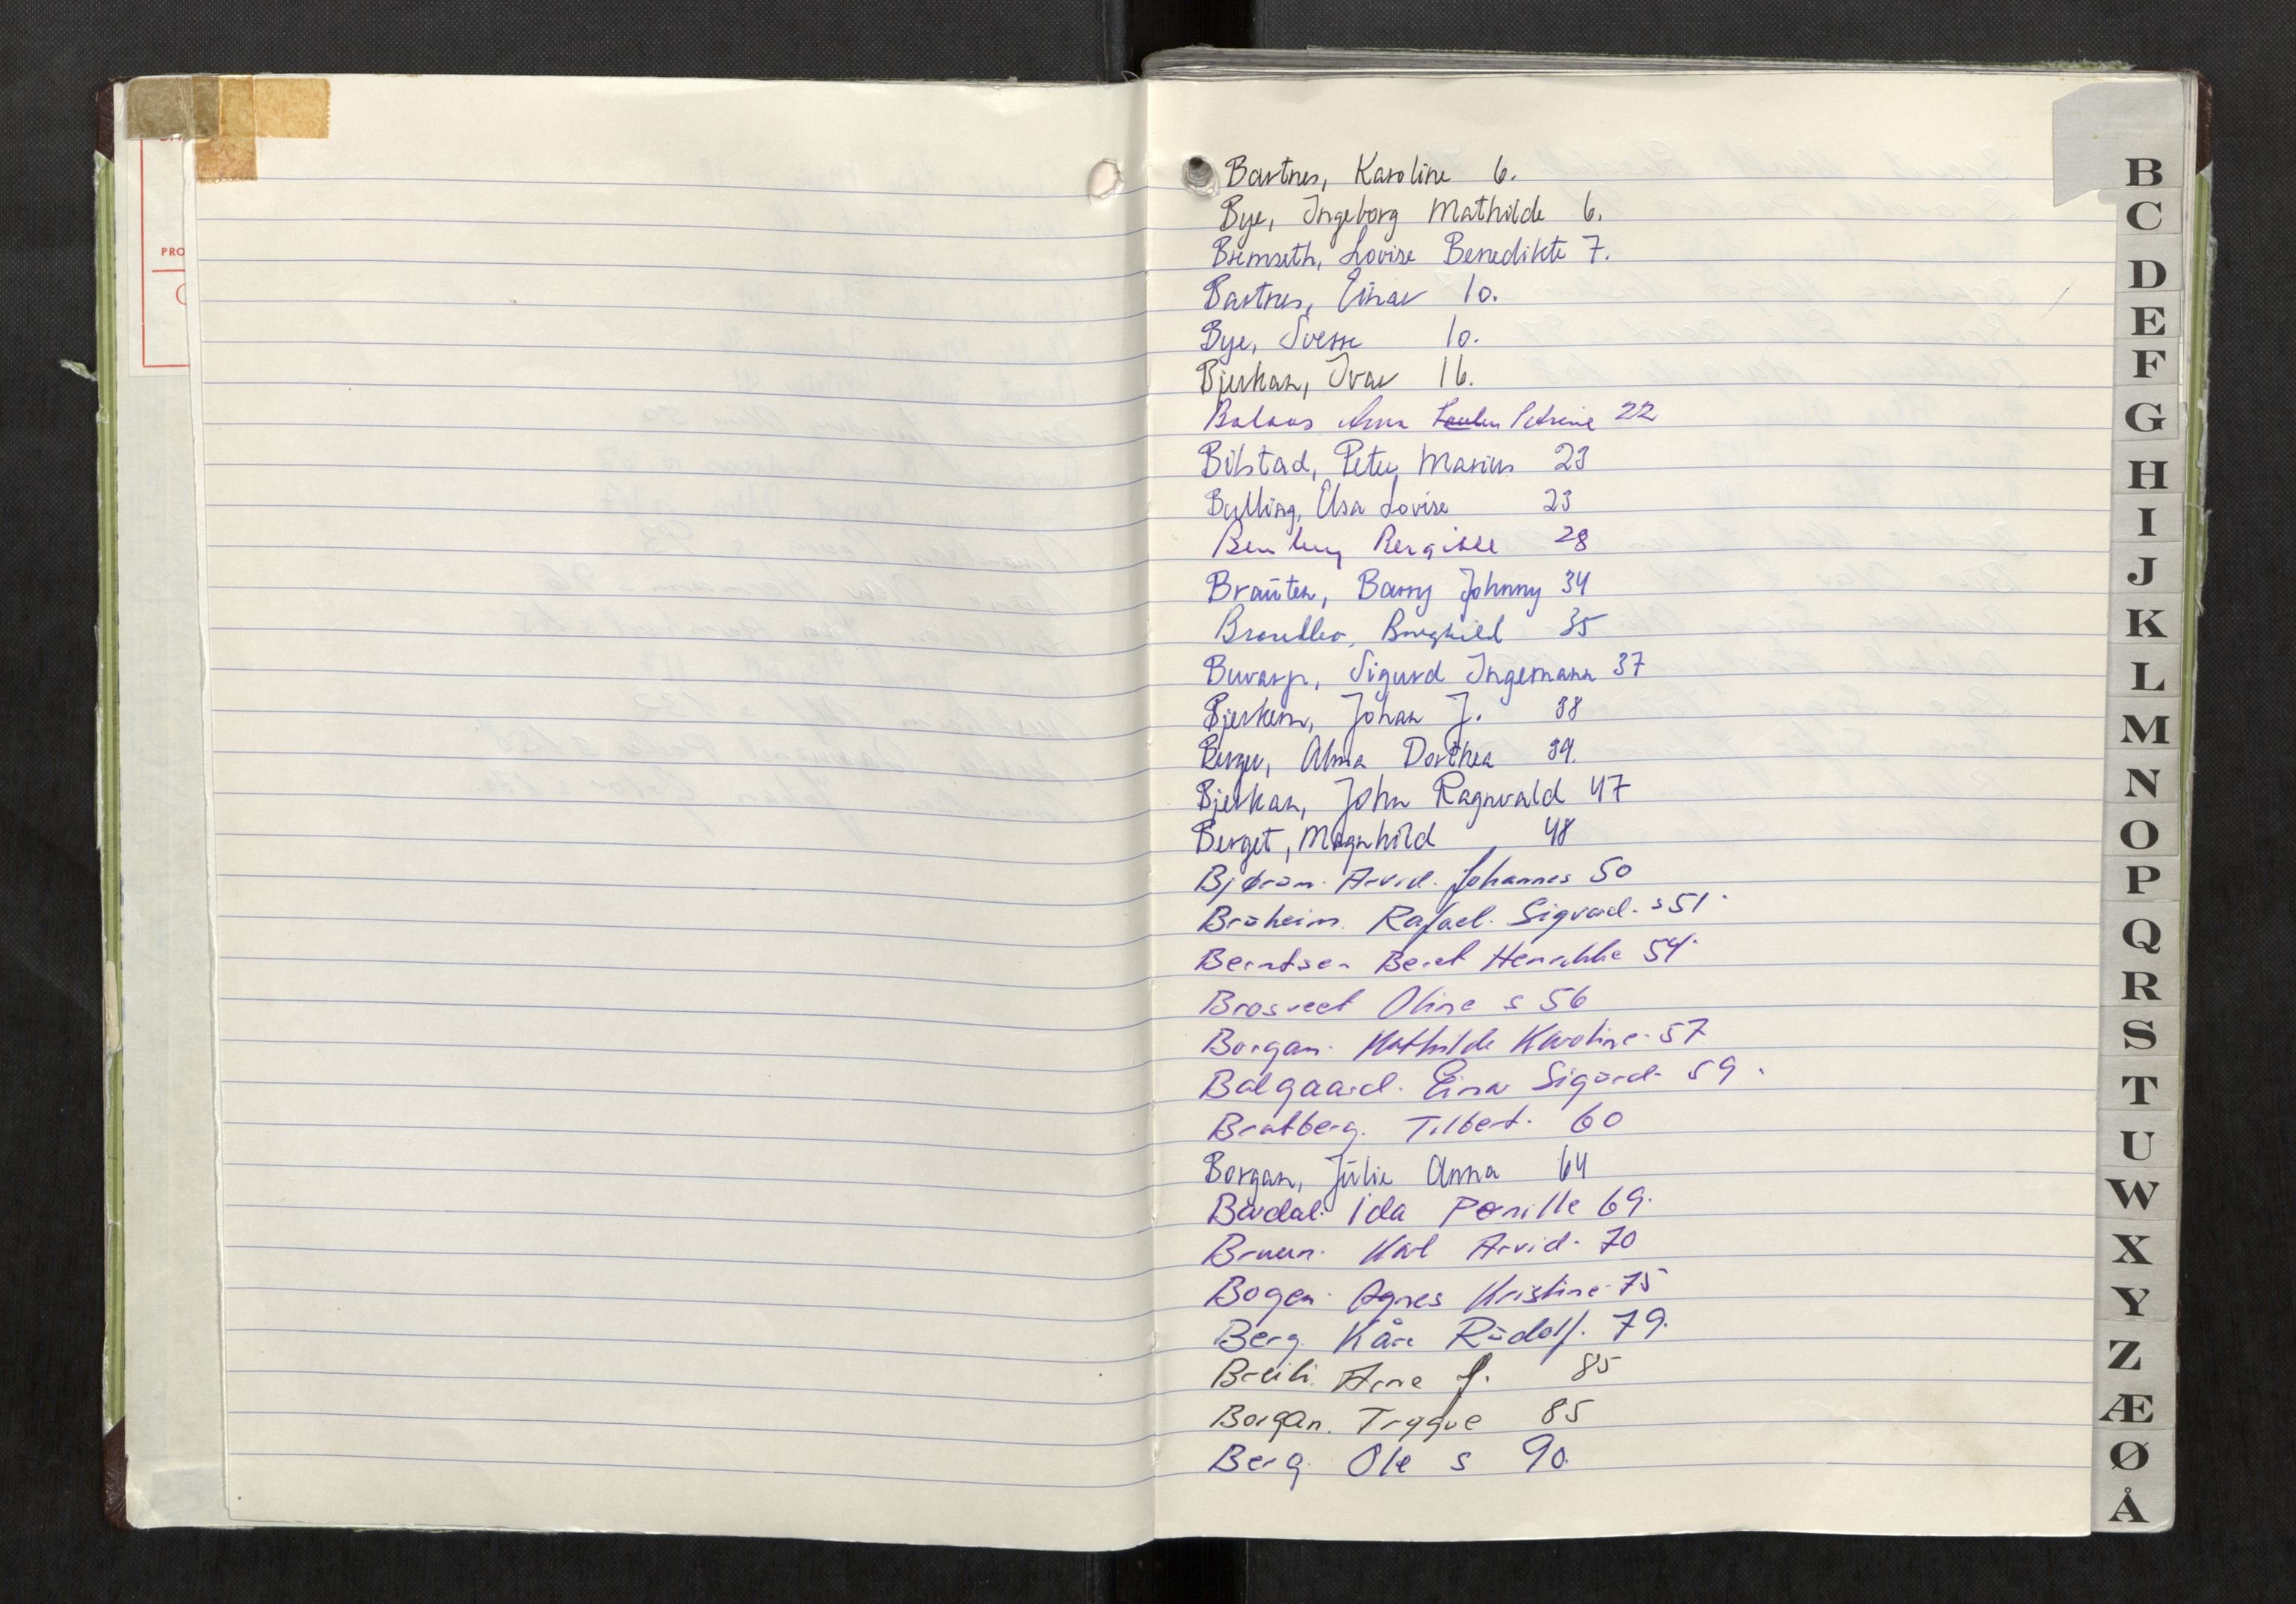 PRO
Bartnes, Karoline 6.
Bye, Ingeborg Mathilde 6.
Bremseth, Lovise Benedikte 7.
Bartnes, Einar 10.
Bye, Sverre 10.
Bjerkan, Ivar 16.
Balaas Anna Petrine 22
Bilstad, Peter Marius 23
Bulling, Elsa Lovise 23
Bergitte 28
Braüten, Barry Johnny 34
Borghild 35
Buvarp, Sigurd Ingemann 37
Bjerkem, Johan J. 38
Berger, Alma Dorthea 39.
Bjerkan, John Ragnvald 47
Berget, Magnhild 48
Bjøran. Arvid. Johannes 50
Brøheim. Rafael. Sigvard. s 51.
Berntsen Beret Henrikke 54.
Brosveet Oline s 56
Borgan. Mathilde Karoline. 57
Balgaard. Einar Sigurd. 59.
Bratberg. Tilbert. 60
Borgan, Jülie Anna 64
Bardal. Ida Pernille 69.
Bruun. Karl Arvid. 70
Bogen. Agnes Kristine. 75
Berg. Kåre Rudolf. 79.
Breili. Arne J. 85
Borgan. Trygve 85
Berg. Ole s 90.
B
C
D
E
F
G
H
I
J
K
L
M
N
O
P
Q
R
S
T
U
W
X
Y
Z
Æ
Ø
Å